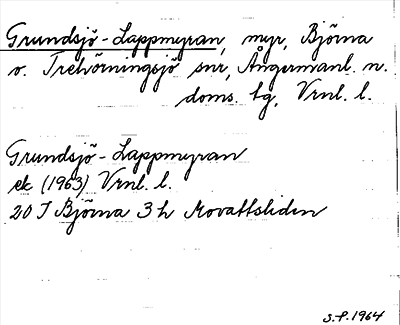 Grundsjö-Lappmyran, myr, Björna
o. Trehörningsjö snr, Ångermanl. n.
doms. tg, Vrnl. l.
Grundsjö-Lappmyran
ek (1963) Vrnl. l.
20 I Björna 3 h Movattsliden
S.P. 1964